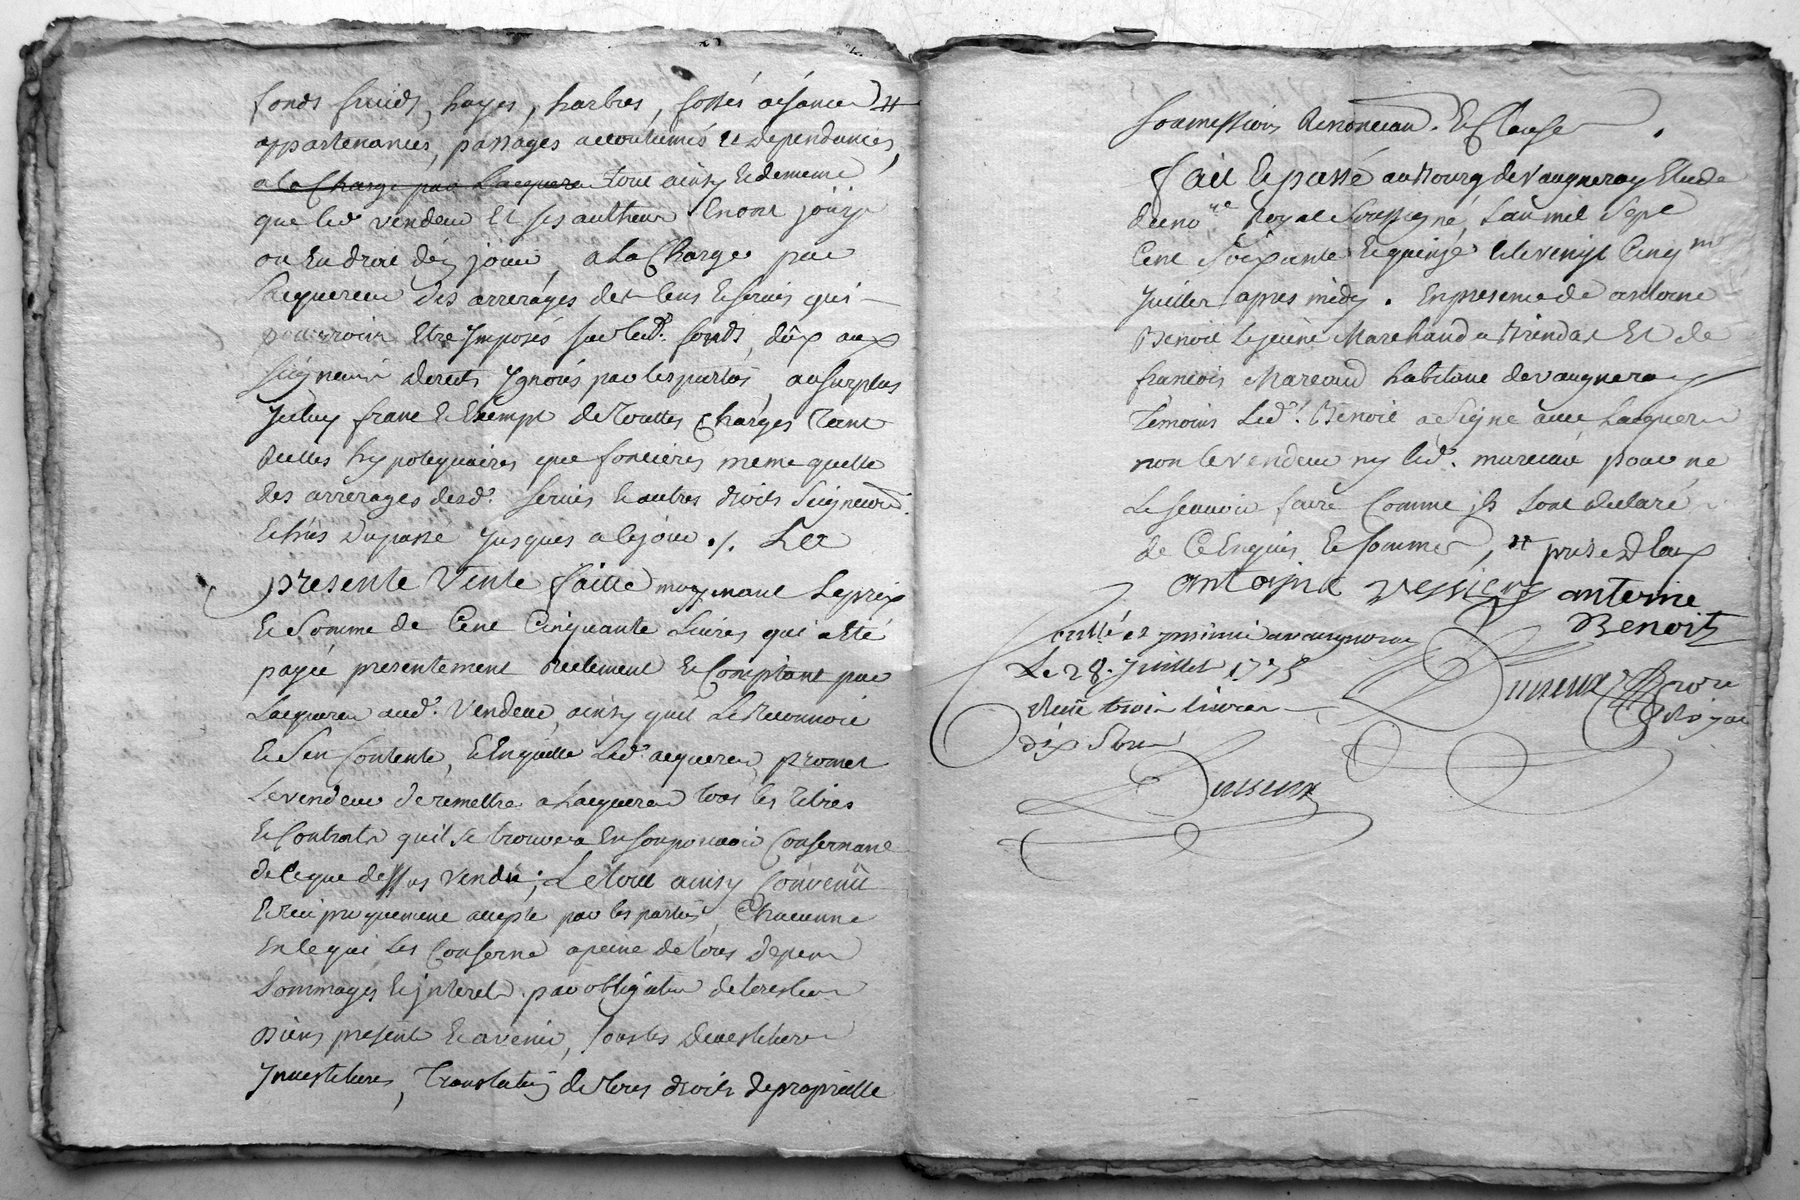 fonds fruids, hayes, harbres, fossés aisances #
appartenances, passages accoutumés et dependances,
a la Charge par Lacquereur tout ainsy et de meme
que led. vendeur Et ses autheurs En ont jouÿ
ou En droit d'ej jouir, a La Charge par
Lacquereur des arrerages de Cens Et servis qui
pourroint Etre Imposés sur led. fonds, dûx aux
seigneurs directs Ignorés par les parties, au surplus
Jceluy franc Et Exempt de touttes Charges tant
Reelles hypotequaires que foncieres meme quitte
des arrerages desd. servis Et autres droits seigneur.
Echûs Du passé Jusques a ce jour ./. La
presente Vente faitte moyenant Le prix
Et Somme de Cent Cinquante Livres qui a Eté
payée presentement Reelement Et Comptant par
Lacquereur aud. Vendeur, ainsy quil Le Reconnoit
Et s'en Contente, Et En quitte Led. acquereur, promet
Le vendeur de remettre a Lacquereur tous les titres
Et Contrats qu'il se trouvera En son pouvoir Consernant
de Ce que dessus vendu; Le tout ainsy Convenû
Et reciproquement accepté par les parties, Chacunne
En ce qui Les Conserne a peine de tous depens
Dommages Et jnterets par obligation de tous leurs
Biens presents Et avenir, sous les Devestitures
Jnvestitures, Translation de tous droits de proprietté
Soumissions Renonciaon. Et Clauses.
Fait Et passé au Bourg de Vaugneray Etude
du no.re Royal soussigné, Lan mil sept
Cent Soixante Et quinze Et le vingt Cinq
Juillet apres midy. En presence de antoine
Benoit Le jeune Marchand a Brindas Et de
francois Marcoud habitant de vaugneray
Témoins Led. Benoit a signé avec Lacquereur
non le vendeur ny led. marcoud pour ne
Le scavoir faire Comme ils Lont declaré
de Ce Enquis Et sommés, # prise D'Eaux
antoine antoine
Benoit
le 28. Juillet 1775
Reçu trois livres
dix sous